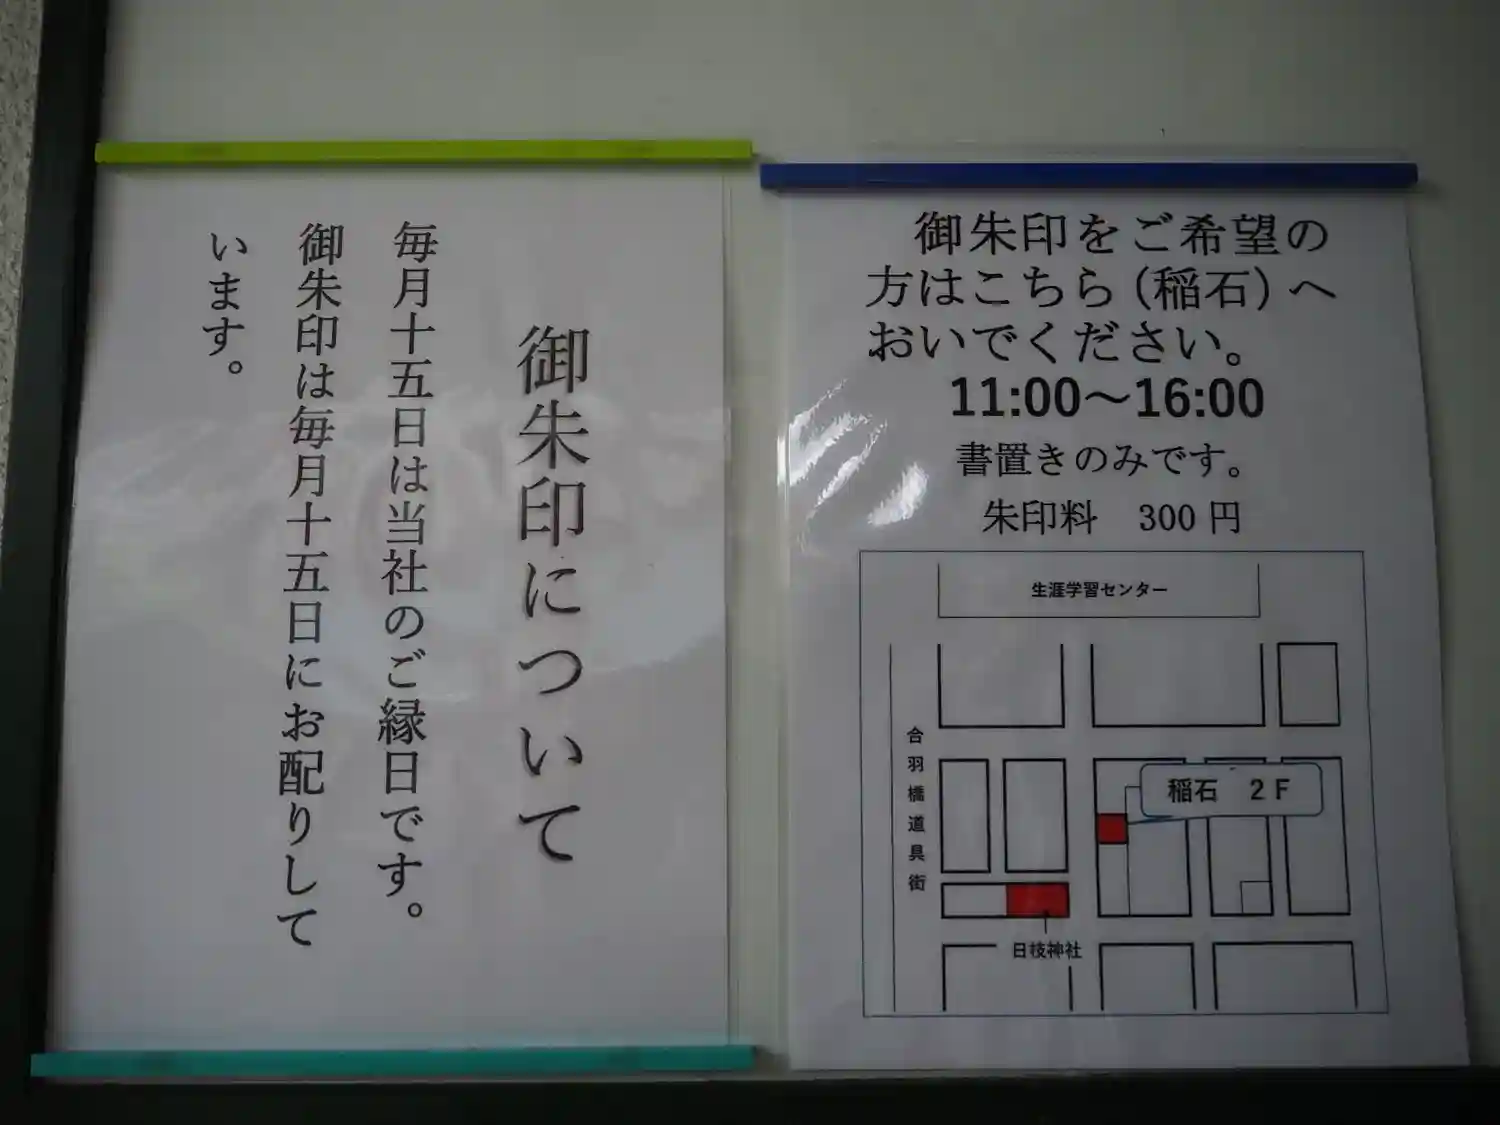 御朱印について
毎月十五日は当社のご縁日です。
御朱印は毎月十五日にお配りして
います。
御朱印をご希望の
方はこちら(稲石)へ
おいでください。
11:00～16:00
書置きのみです。
朱印料　300 円
生涯学習センター
合羽橋道具街
稲石　2F
日枝神社